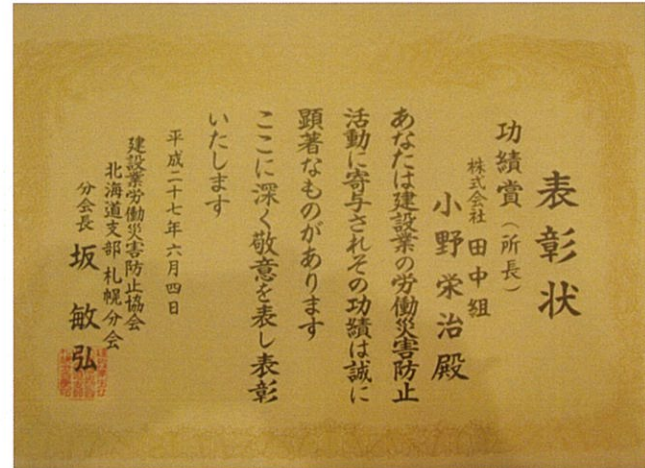 表彰状
功績賞（所長）
株式会社 田中組
小野栄治殿
あなたは建設業の労働災害防止
活動に寄与されその功績は誠に
顕著なものがあります
ここに深く敬意を表し表彰
いたします
平成二十七年六月四日
建設業労働災害防止協会
北海道支部札幌分会
分会長 坂 敏弘